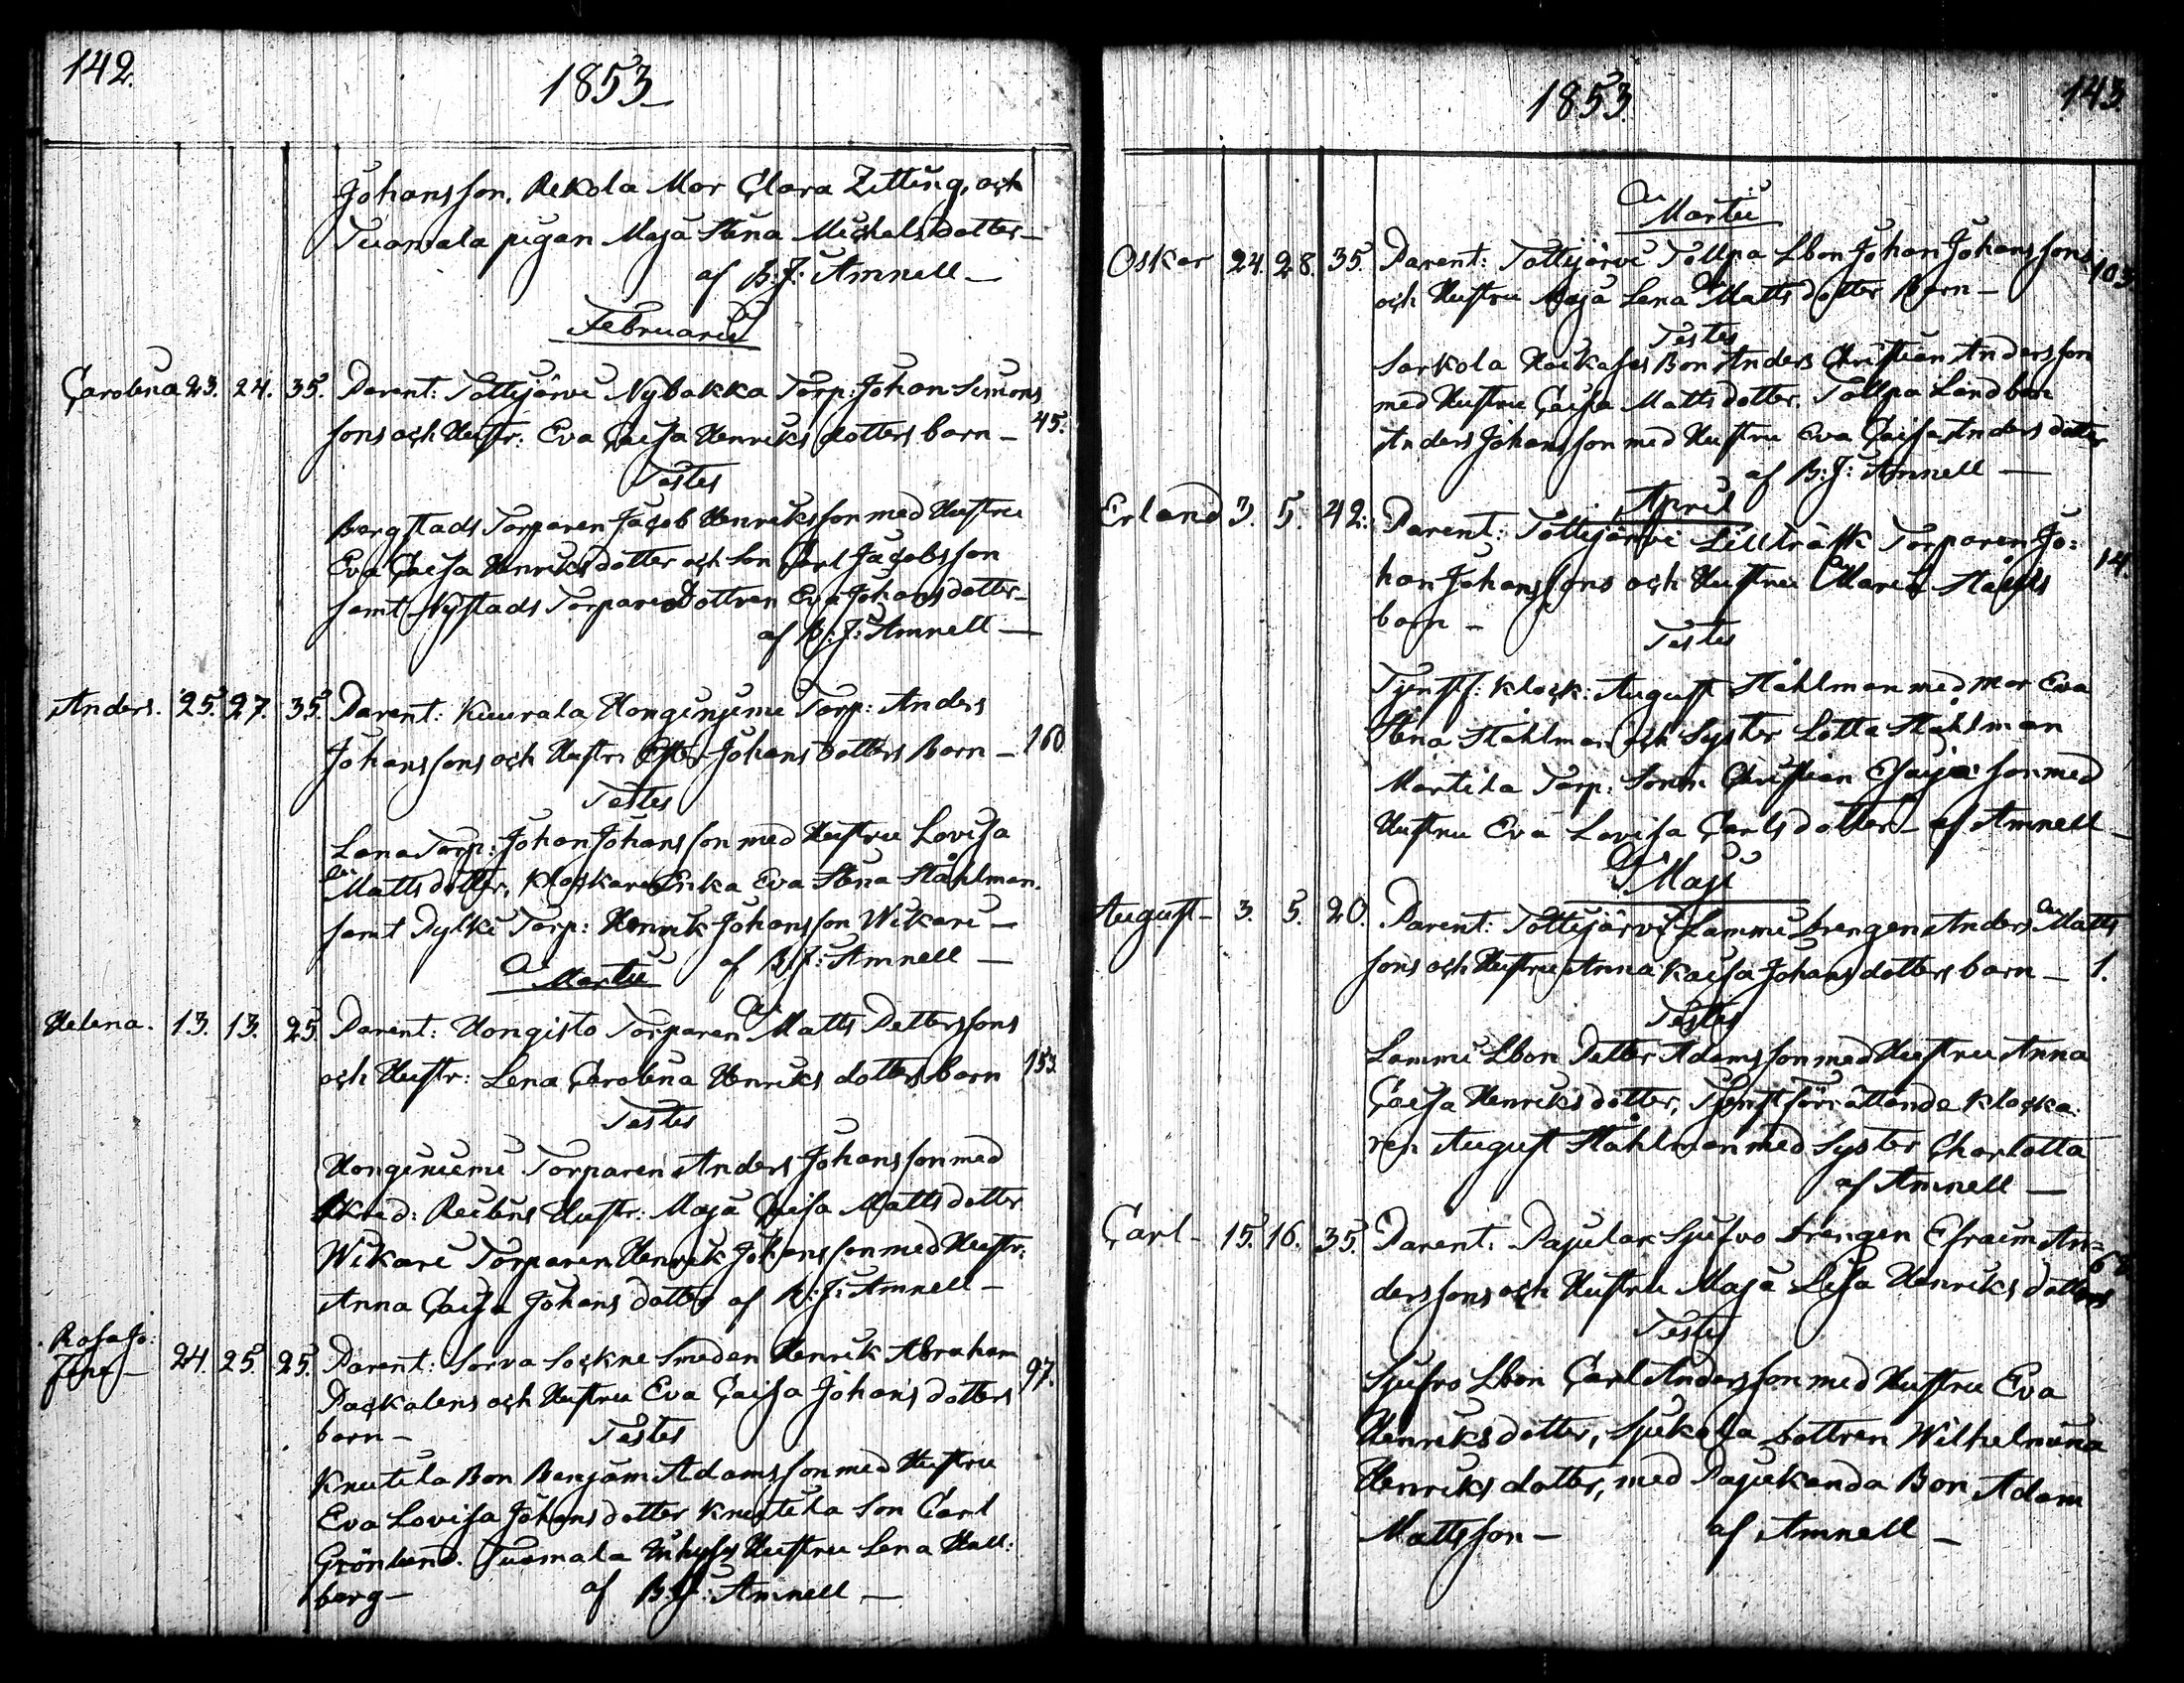 142.
1853
Johansson, Rekola Mor Clara Zitting, och
Tuomala pigan Maja Stina Michelsdotter –
af B: J: Amnell –
Februarii
Carolina 23. 24. 35. Parent: Tottijärvi Nybakka Torp: Johan Simons
sons och Hustr: Eva Caisa Henriksdotters barn – 45.
Testes
Bergstads Torparen Jacob Henriksson med Hustru
Eva Caisa Henriksdotter och Son Carl Jacobsson
samt Nystads Torpare Dottren Eva Johansdotter –
af B: J: Amnell –
Anders. 25. 27. 35. Parent: Kuurala Honginjemi Torp: Anders
Johanssons och Hustr: Johansdotters Barn – 160
Testes
Lana Torp: Johan Johansson med Hustru Lovisa
Mattsdotter, Klockare Enka Eva Stina Ståhlman.
samt Pylki Torp: Henrik Johansson Wikari –
af B: J: Amnell –
Martii
Helena. 13. 13. 25 Parent: Hongisto Torparen Matts Petterssons
och Hustr: Lena Carolina Henriksdotters barn 153
Testes
Honginiemi Torparen Anders Johansson med
Skred: Hustr: Maja Caisa Mattsdotter
Wikari Torparen Henrik Johansson med Hustr:
Anna Caisa Johansdotter af B: J: Amnell –
Rosa Jo:
24. 25. 25. Parent: Sorva Sockne Smeden Henrik Abraham
Packalens och Hustru Eva Caisa Johansdotters 97.
barn –
Testes
Knutila Bon Benjam: Adamsson med Hustru
Eva Lovisa Johansdotter Knutila Son Carl
Grönlund. Tuomala Hustru Lena Hall:
berg –
af B: J: Amnell –
1853.
143
Martii
Oskar 24. 28. 35. Parent: Tottijärvi Tollpa Lbon Johan Johanssons 103
och Hustru Maja Lena Mattsdotter Barn –
Testes
Sarkola Bon Anders Christian Andersson
med Hustru Caisa Mattsdotter. Tollpa Landbon
Anders Johansson med Hustru Eva Caisa Andersdotter
af B: J: Amnell –
April
Erland 3. 5. 42. Parent: Tottijärvi Lillträsk Torparen Jo: 14.
han Johanssons och Hustru Maria
barn –
Testes
Tjenstf: Klock: August Ståhlman med Mor Eva
Stina Ståhlman och Syster Lotta Ståhlman
Martila Torp: Sonen Christian Esaja son med
Hustru Eva Lovisa Carlsdotter – af Amnell –
Maji
August – 3. 5. 20. Parent: Tottijärvi Lammi Drengen Anders Matts
sons och Hustru Anna Kaisa Johansdotters barn – 1.
Testes
Lammi Lbon Petter Adamsson med Hustru Anna
Caisa Henriksdotter, Tjenstförrättande Klocka:
ren August Ståhlman med Syster Charlotta
af Amnell –
Carl – 15. 16. 35. Parent: Pajulax Sjufvo Drengen Efraim An=
derssons och Hustru Maja Lisa Henriksdotters
Testes
Sjufvo Lbon Carl Andersson med Hustru Eva
Henriksdotter, Sjukola Dottren Wilhelmina
Henriksdotter, med Pajukanda Bon Adam
Mattsson – af Amnell –